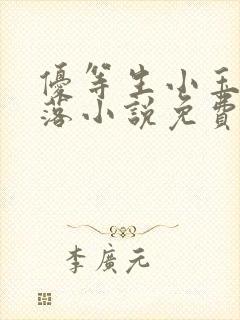 優等生小玉
落小說免費
李廣元